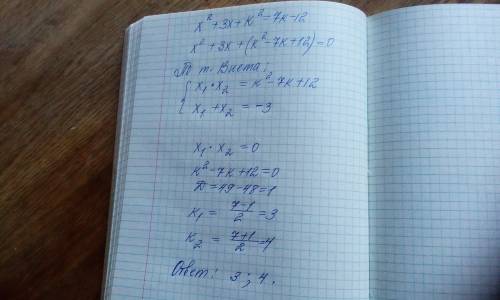 x² + 3x + k² = 7k - 12
x² + 3x + (k² - 7k + 12) = 0
По т. Виета:
{ x₁ · x₂ = k² - 7k + 12
x₁ + x₂ = -3
x₁ · x₂ = 0
k² - 7k + 12 = 0
D = 49 - 48 = 1
k₁ = (7-1)/2 = 3
k₂ = (7+1)/2 = 4
Ответ: 3; 4.